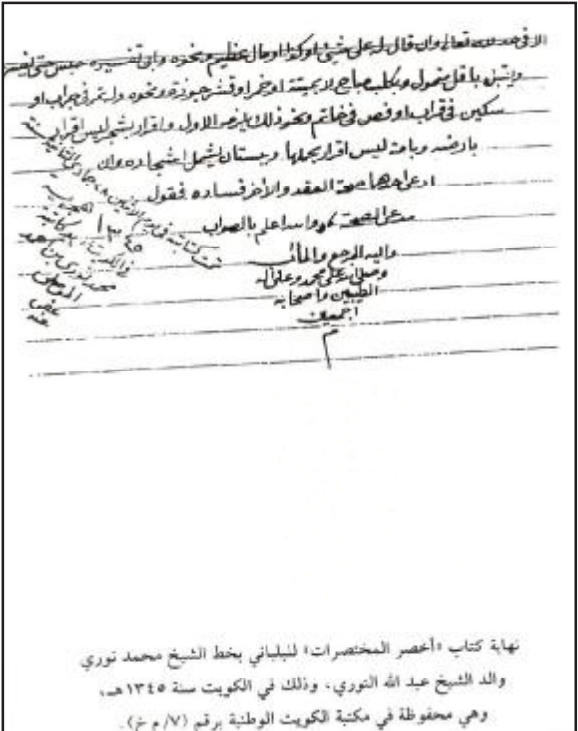 الا في حد لله تعالى وان قال له علي شيئ او كذا او مال عظيم ونحوه وابى تفسيره حبس حتى يفسر
ويقبل باقل متمول وبكلب مباح لا بميتة او خمر او قشر جوزة ونحوه وله تمر في جراب او
سكين في قراب او فص في خاتم ونحو ذلك يلزمه الاول واقرار بشجر ليس اقرار
بارضه وبامة ليس اقرار بحملها وببستان يشمل اشجاره وان
ادعى احدهما صحة العقد والاخر فساده فقول
مدعى الصحة والله اعلم بالصواب
واليه المرجع والمآب
وصلى الله على محمد وعلى اله
الطيبين واصحابه
اجمعين
م
تمت كتابته في يوم الاثنين جمادى الثانية سنة
١٣٤٥ الهجرية
في الكويت بيد كاتبه
محمد نوري بن احمد
الموصلي
عفي
عنه
نهاية كتاب «أخصر المختصرات» للبلباني بخط الشيخ محمد نوري
والد الشيخ عبد الله النوري، وذلك في الكويت سنة ١٣٤٥هـ،
وهي محفوظة في مكتبة الكويت الوطنية برقم (٧/ م خ).